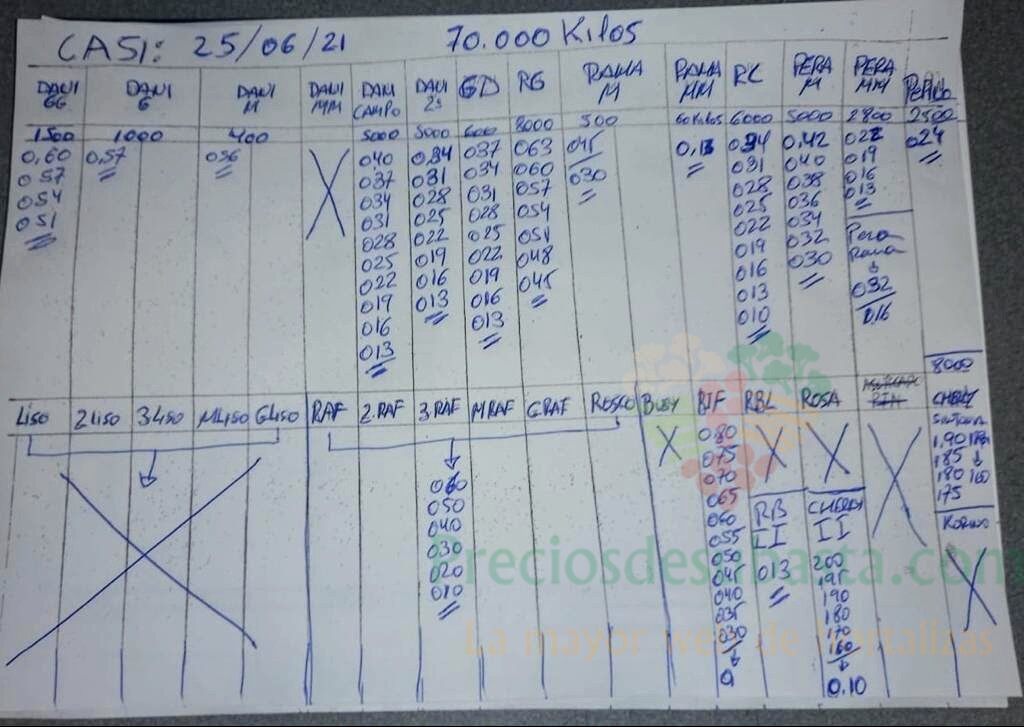 CASI: 25/06/21 70.000 Kilos
DANI GG DANI G DANI M DANI MM DANI CAMPO DANI 2ª GD RG RAMA M RAMA MM RC PERA M PERA MM PEPINO
1500 1000 400 5000 5000 600 8000 500 60 Kilos 6000 5000 2800 2500
0,60 0,57 056 040 034 037 063 045 0,13 034 0,42 022 024
057 037 031 034 060 030 031 040 019
054 034 028 031 057 028 038 016
051 031 025 028 054 025 036 013
028 022 025 051 022 034 Pera
025 019 022 048 019 032 Rama
022 016 019 045 016 030 032
019 013 016 013 016
016 013 010
013
8000
LISO 2 LISO 3 LISO MLISO GLISO RAF 2.RAF 3.RAF MRAF G.RAF ROSCO BUEY RIF RBL ROSA CHERRY
080 1,90
075 185
070 180 160
060 065 175
050 060 RB II CHERRY II
040 055
030 050 013 200
020 045 195
010 040 190
035 180
030 170
0 160
0.10
Preciosdesubasta.com
La mayor web de hortalizas